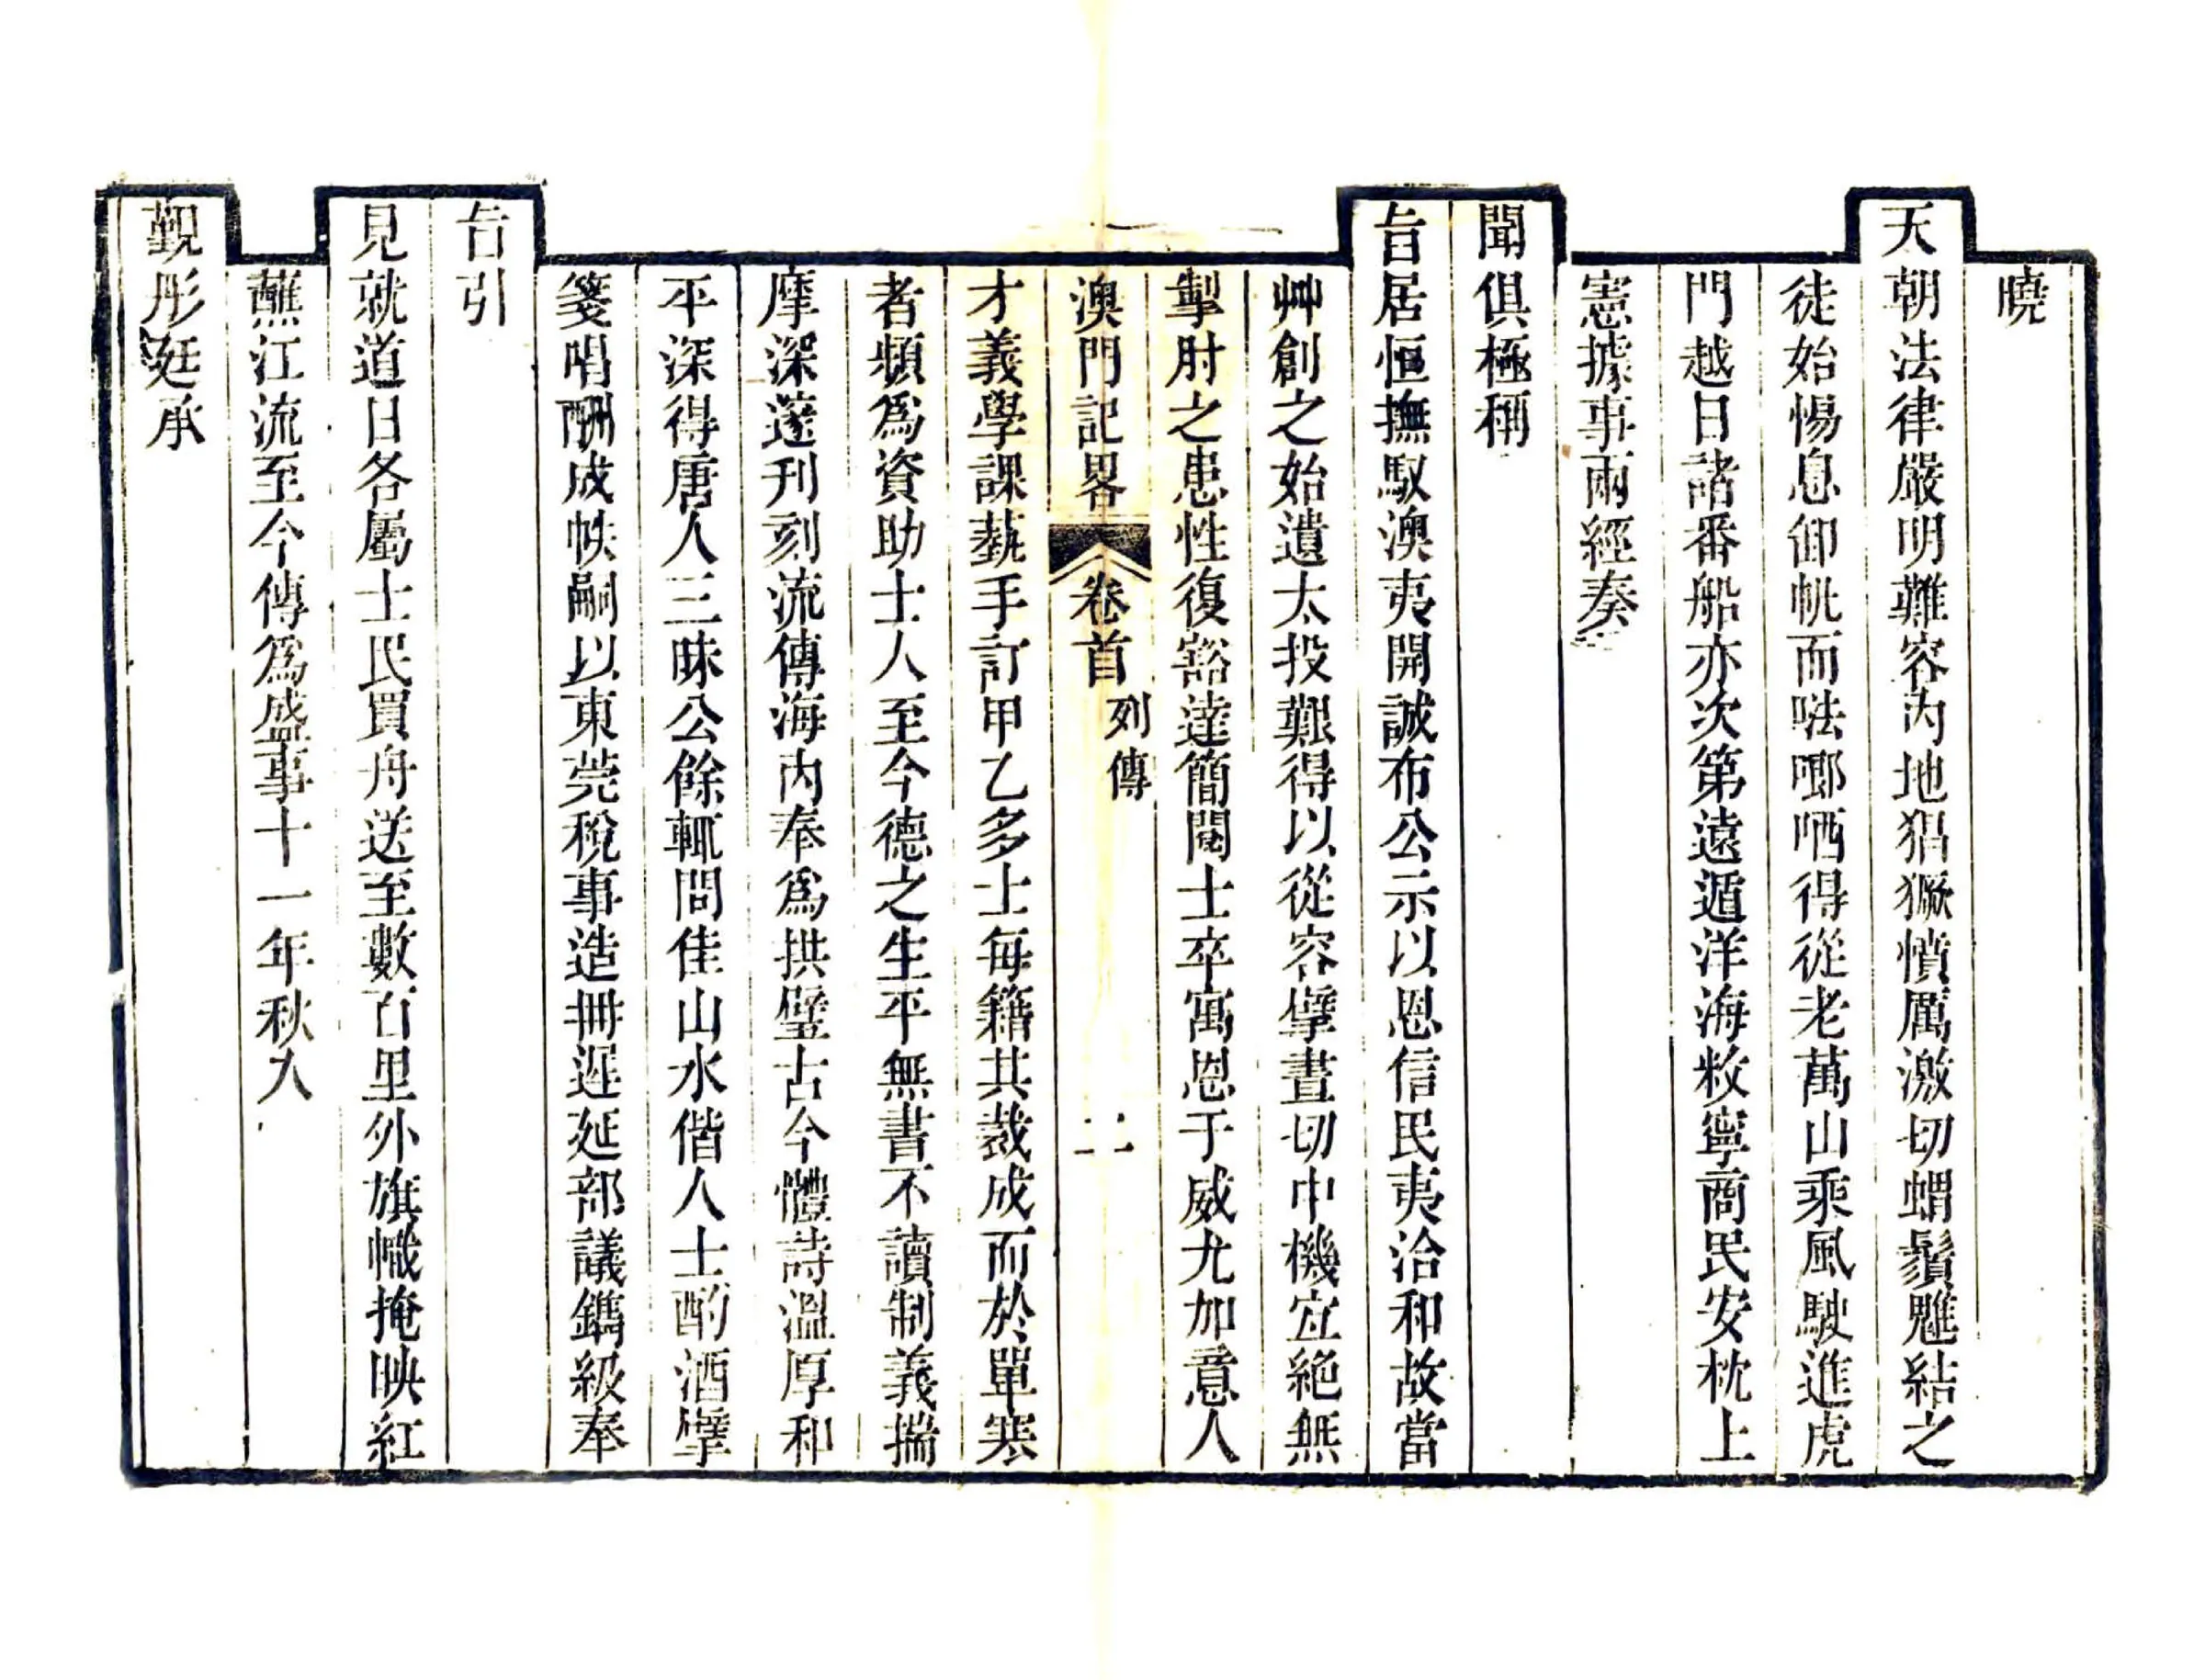 曉
天朝法律嚴明難容內地猖獗憤厲激切蝟鬚魋結之
徒始惕息卸帆而㗶啷哂得從老萬山乘風駛進虎
門越日諸番船亦次第遠遁洋海敉寧商民安枕上
憲據事兩經奏
聞俱極稱
旨居恒撫馭澳夷開誠布公示以恩信民夷洽和故當
艸創之始遺大投艱得以從容擘畫切中機宜絕無
掣肘之患性復豁達簡閱士卒寓恩于威尤加意人
澳門記畧 卷首 列傳 二
才義學課藝手訂甲乙多士每籍其裁成而於單寒
者頻為資助士人至今德之生平無書不讀制義揣
摩深邃刊刻流傳海內奉為拱璧古今體詩溫厚和
平深得唐人三昧公餘輒問佳山水偕人士酌酒擘
箋唱酬成帙嗣以東莞稅事造冊遲延部議鐫級奉
旨引
見就道日各屬士民買舟送至數百里外旗幟掩映紅
蕉江流至今傳為盛事十一年秋入
覲彤廷承